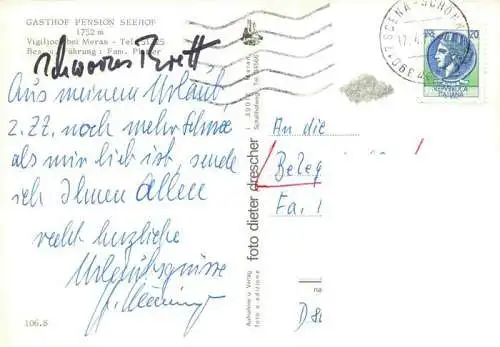 GASTHOF PENSION SEEHOF
1752 m
Vigiljoch bei Meran - Tel. 51225
Bes. u. Führung: Fam.
Schwarzes Brett
Aus meinem Urlaub,
z. Zt. noch mehr Schnee
als mir lieb ist, sende
ich Ihnen Allen
recht herzliche
Urlaubsgrüsse
106.S
foto dieter drescher
Aufnahme u. Verlag
foto e edizione
39012 SCENA - SCHÖNNA
20
An die
Beleg
Fa.